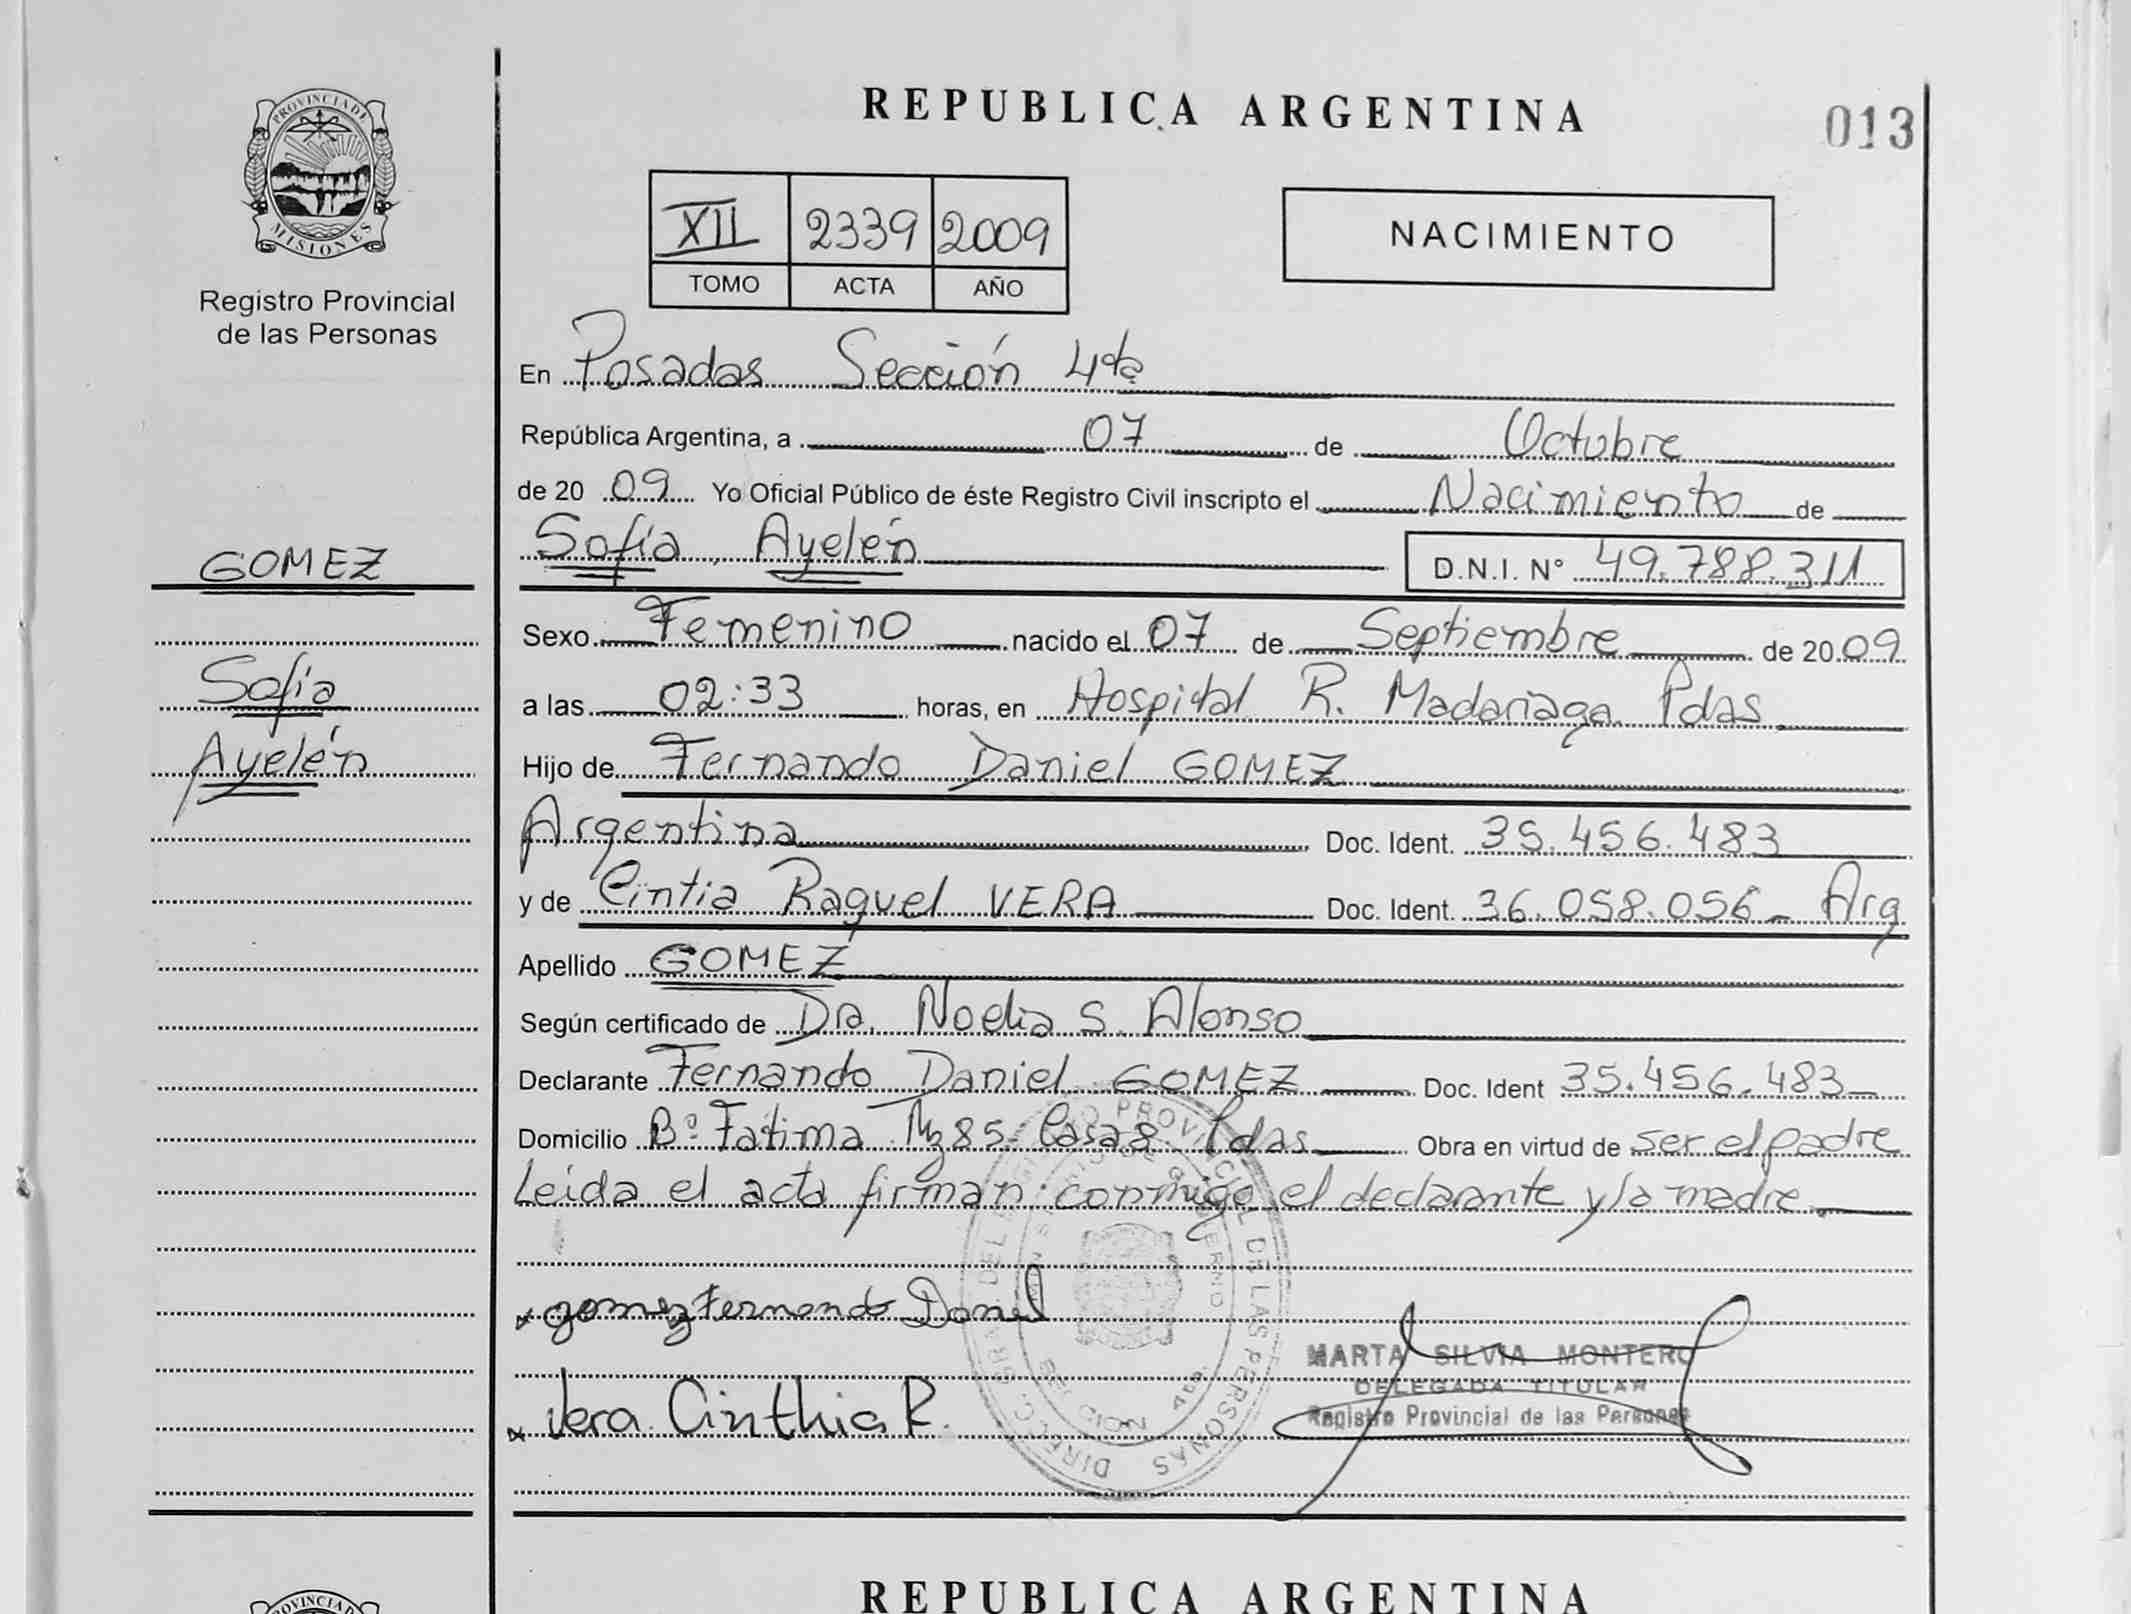 REPUBLICA ARGENTINA
013
PROVINCIA DE
MISIONES
Registro Provincial
de las Personas
XII 2339 2009
TOMO ACTA AÑO
NACIMIENTO
En Posadas Sección 4ta
República Argentina, a 07 de Octubre
de 20 09 Yo Oficial Público de éste Registro Civil inscripto el Nacimiento de
Sofía Ayelén D.N.I. N° 49.788.311
GOMEZ
Sofía
Ayelén
Sexo Femenino nacido el 07 de Septiembre de 20 09
a las 02:33 horas, en Hospital R. Madariaga Pdas
Hijo de Fernando Daniel GOMEZ
Argentina Doc. Ident. 35.456.483
y de Cintia Raquel VERA Doc. Ident. 36.058.056 - Arg
Apellido GOMEZ
Según certificado de Dra. Noelia S. Alonso
Declarante Fernando Daniel GOMEZ Doc. Ident 35.456.483
Domicilio Bº Fátima Mz 85 Casa 8 Pdas Obra en virtud de ser el padre
Leída el acta firman conmigo el declarante y la madre.
gomez Fernando Daniel
Vera Cinthia R.
MARTA SILVIA MONTERO
DELEGADA TITULAR
Registro Provincial de las Personas
PROVINCIAL DE LAS PERSONAS
REPUBLICA ARGENTINA
PROVINCIA